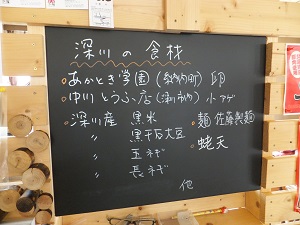 深川の食材
あかとき学園(納内町)卵
中川とうふ店(深川市内)小アゲ
深川産 黒米
〃 黒千石大豆
〃 玉ネギ
〃 長ネギ
麺 佐藤製麺
蛯天
他